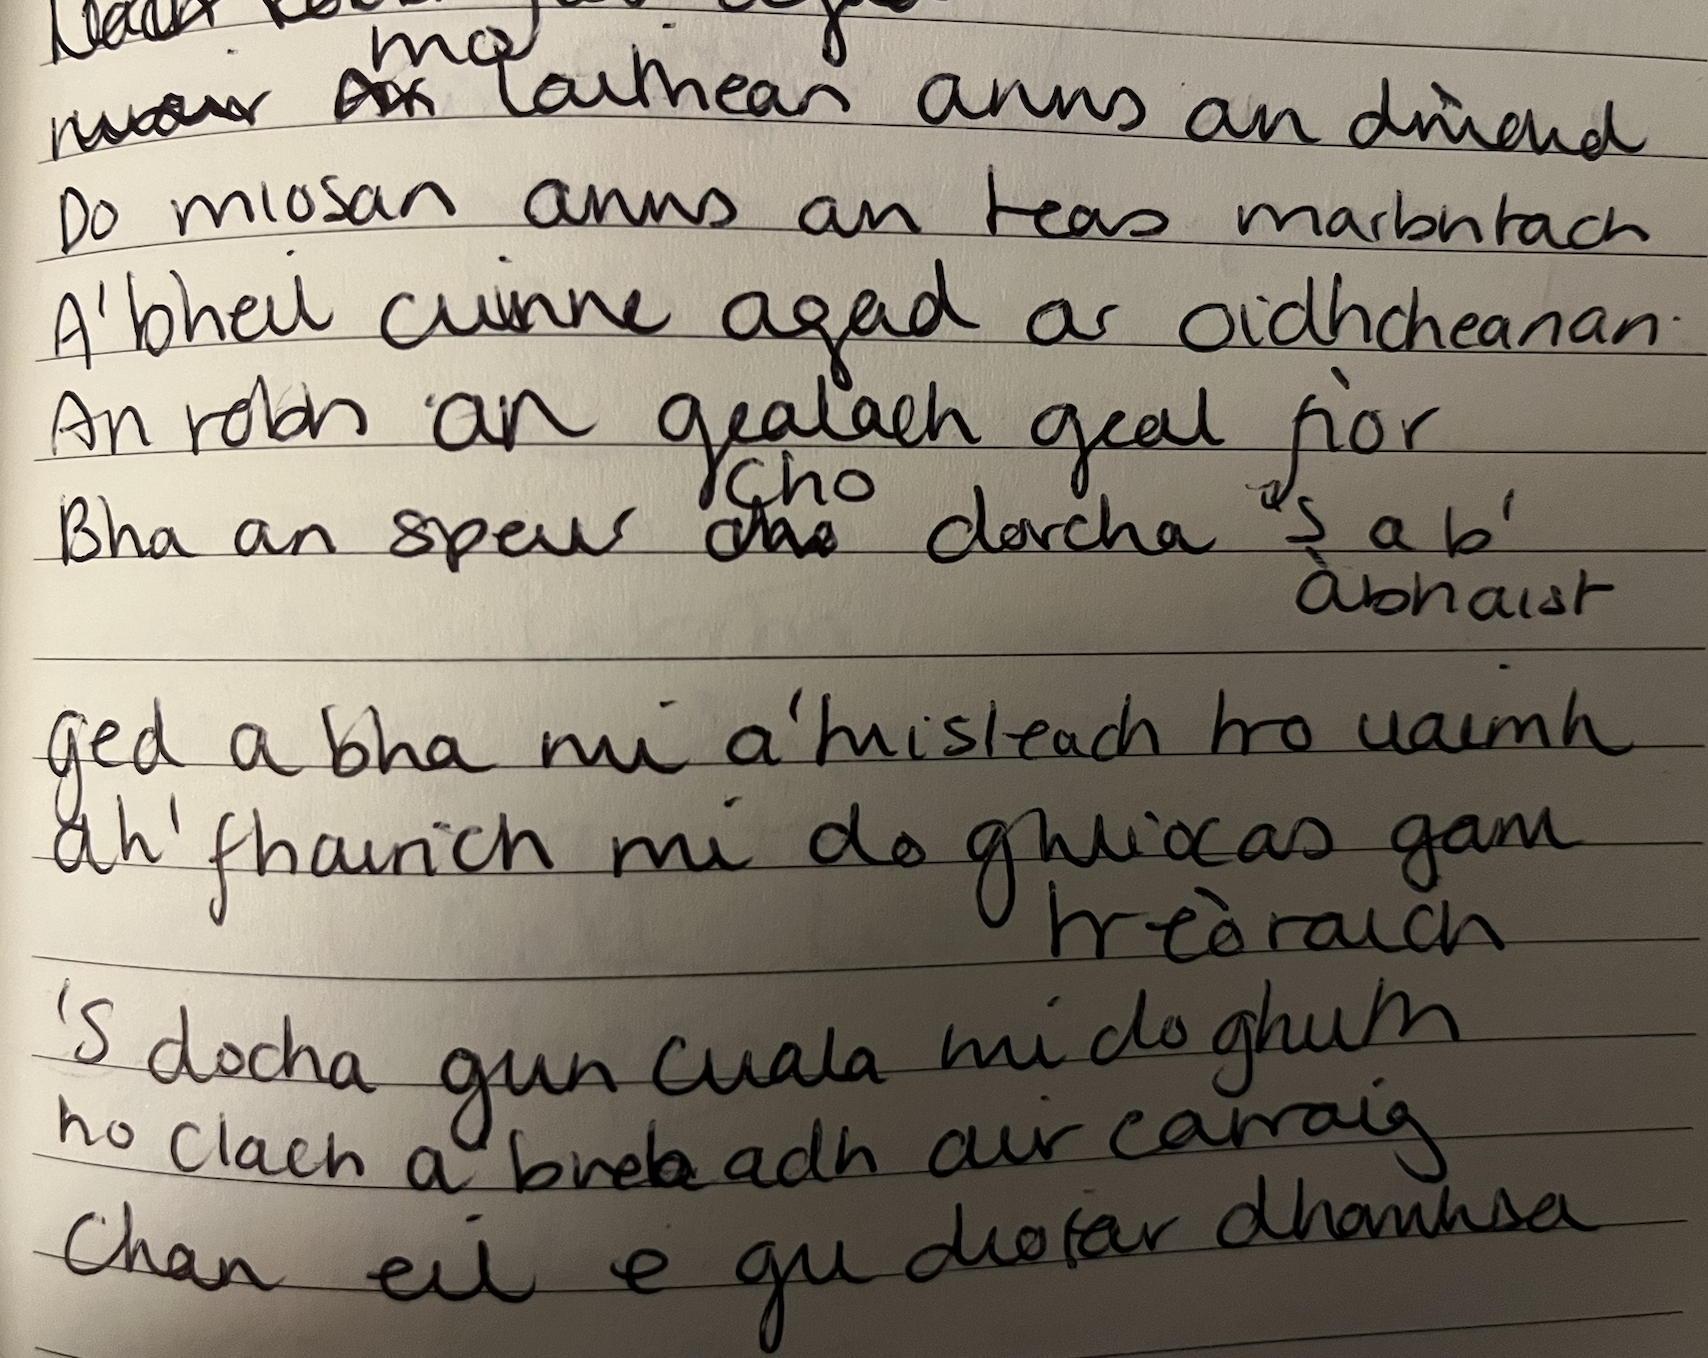 mo
làithean anns an
Do miosan anns an teas marbhtach
A' bheil cuinne agad ar oidhcheanan
An robh an gealach geal fìor
cho
Bha an speur dorcha 's a b'
àbhaist
ged a bha mi a' tuisleach tro uaimh
dh' fhairich mi do ghliocas gam
treòraich
'S docha gun cuala mi do ghuth
no clach a breabadh air carraig
Chan eil e gu diofar dhomhsa